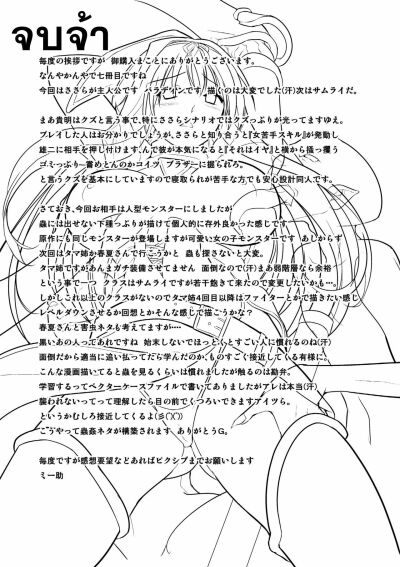 จบจ้า
毎度の挨拶ですが　御購入まことにありがとうございます。
なんやかんやで七冊目ですね
今回はささらが主人公です　パラディンです　描くのは大変でした(汗)次はサムライだ。
まあ貴明はクズと言う事で、特にささらシナリオではクズっぷりが光ってますゆえ。
プレイした人はお分かりでしょうが、ささらと知り合うと『女苦手スキル』が発動し
雄二に相手を押し付けます、んで彼が本気になると『それはイヤ』と横から掻っ攫う
ゴミっぷり…嘗めとんのかコイツ　ブラザーに掘られろ。
と言うクズを基本にしていますので寝取られが苦手な方でも安心設計同人です。
さておき、今回お相手は人型モンスターにしましたが
蟲には出せない下種っぷりが描けて個人的に存外良かった感じです
原作にも同じモンスターが登場しますが可愛い女の子モンスターです　あしからず
次回はタマ姉か春夏さんで行こうかと　蟲も探さないと大変。
タマ姉ですがあんまガチ装備させてません　面倒なので(汗)まあ弱階層なら余裕
という事で一つ　クラスはサムライですが若干飽きて来たので変更したいかも…。
しかしこれ以上のクラスがないのでタマ姉4回目以降はファイターとかで描きたい感じ
レベルダウンさせるか回想とかそんな感じで描こうかな？
春夏さんと害虫ネタも考えてますが…。
黒いあの人ってあれですね　始末しないでほっとくとすごい人に慣れるのね(汗)
面倒だから適当に追い払ってたら学んだのか、ものすごく接近してくる有様に。
こんな漫画描いてると蟲を見るくらいは慣れましたが触るのは勘弁。
学習するってベクターケースファイルで書いてありましたがアレは本当(汗)
襲われないってって理解したら目の前でくつろいできますアイツら。
というかむしろ接近してくるよ
こうやって蟲姦ネタが構築されます　ありがとうG。
毎度ですが感想要望などあればピクシブまでお願いします
ミー助